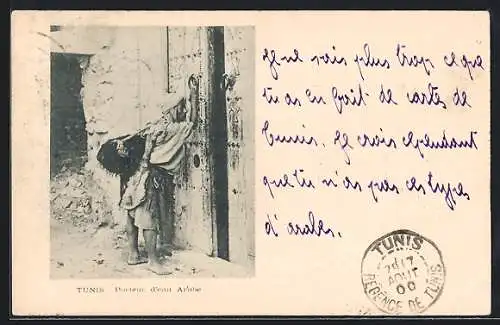 Je ne vois plus trop ce que
tu as en fait de cartes de
Tunis. Je crois cependant
que tu n'as pas ces types
d'arabes.
TUNIS Porteur d'eau Arabe
TUNIS
AOUT
00
REGENCE DE TUNIS